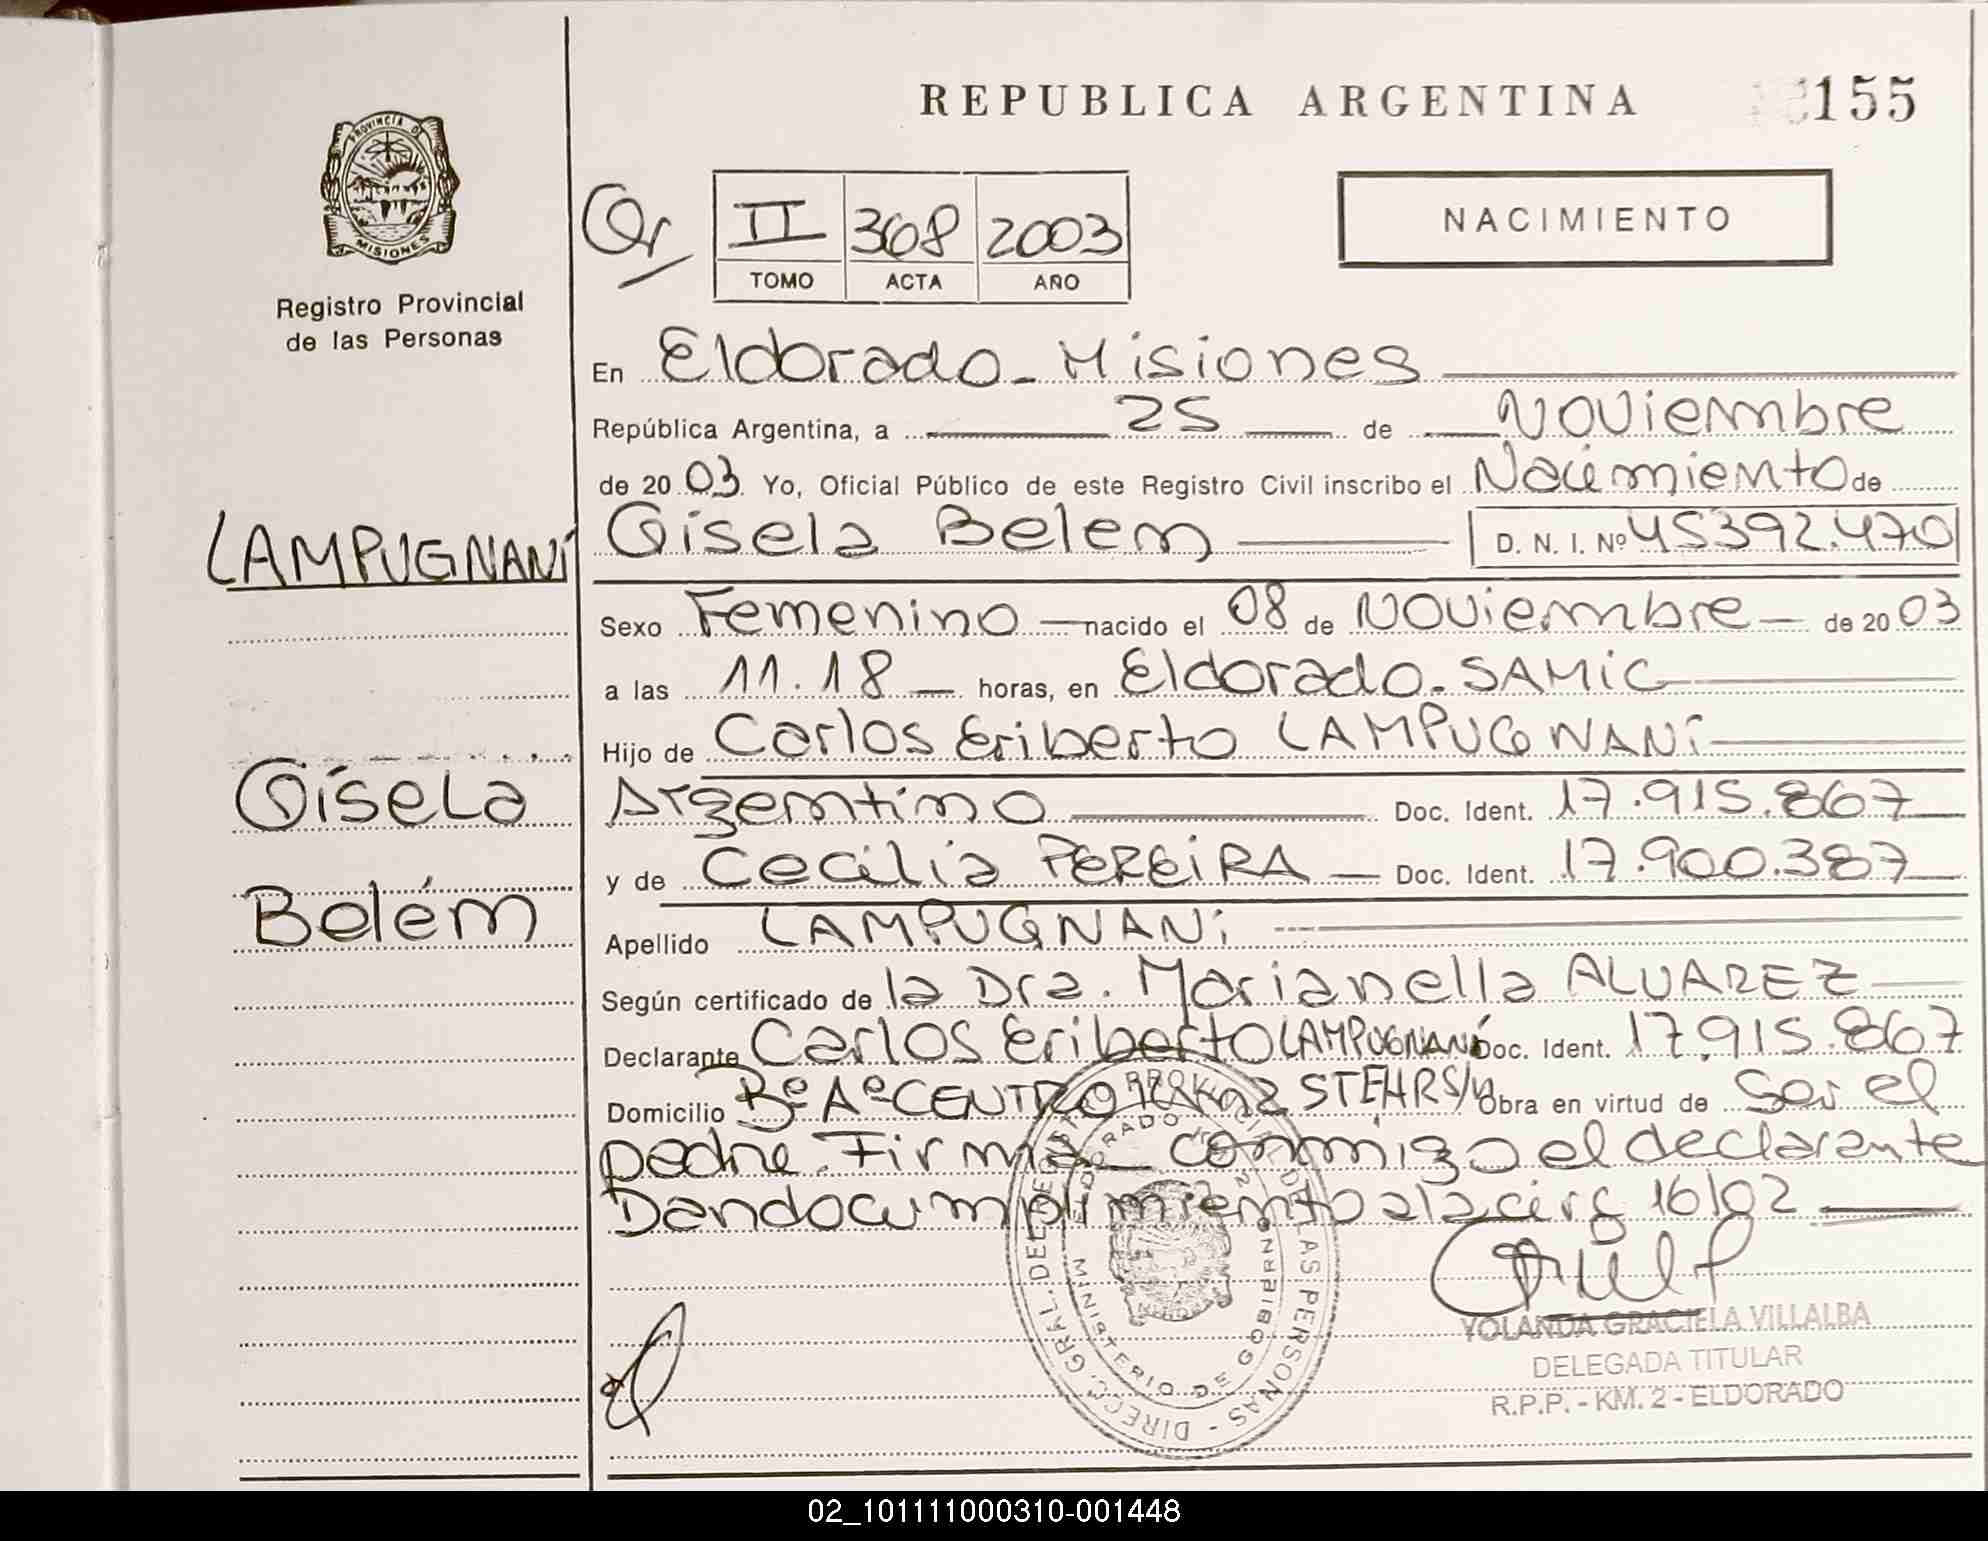 REPUBLICA ARGENTINA 155
PROVINCIA DE
MISIONES
Registro Provincial
de las Personas
II 368 2003
TOMO ACTA AÑO
NACIMIENTO
En Eldorado - Misiones
República Argentina, a 25 de Noviembre
de 2003. Yo, Oficial Público de este Registro Civil inscribo el Nacimiento de
LAMPUGNANI
Gisela Belem D. N. I. Nº 45392.470
Sexo Femenino nacido el 08 de Noviembre de 2003
a las 11.18 horas, en Eldorado - SAMIC
Hijo de Carlos Eriberto LAMPUGNANI
Gisela
Argentino Doc. Ident. 17.915.867
y de Cecilia PEREIRA Doc. Ident. 17.900.387
Belém
Apellido LAMPUGNANI
Según certificado de la Dra. Marianella ALVAREZ
Declarante Carlos Eriberto LAMPUGNANI Doc. Ident. 17.915.867
Domicilio Bº Aº CENTRO Obra en virtud de ser el
padre. Firma conmigo el declarante
Dando cumplimiento a la circ 16/02
DIRECC. GRAL. DEL DE LAS PERSONAS
MINISTERIO DE GOBIERNO
YOLANDA GRACIELA VILLALBA
DELEGADA TITULAR
R.P.P. - KM. 2 - ELDORADO
02_101111000310-001448